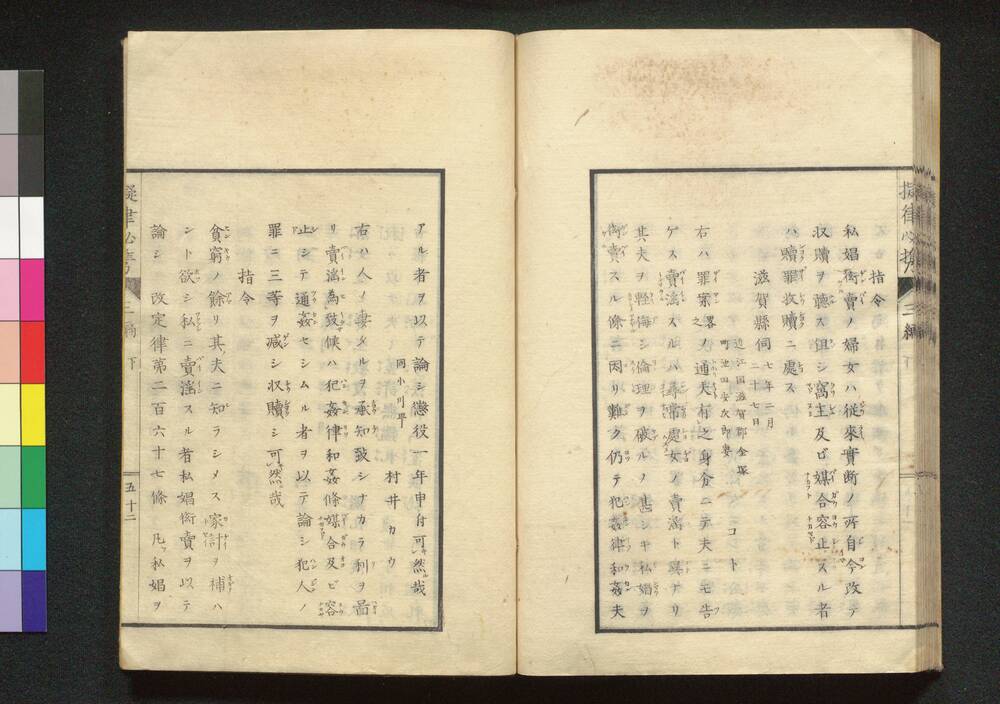 擬律必携
三編
下
指令
私娼衒賣ノ婦女ハ従來實断ノ所自今改テ
収贖ヲ聴ス但シ窩主及ビ媒合容止スル者
ハ贖罪收贖ニ處ス
滋賀縣伺 七年二月二十七日
近江国滋賀郡金塚
町池田安次郎妻
コト
右ハ罪案畧之通夫有之身分ニテ夫ニモ告
ゲス賣滛スルハ尋常處女ノ賣滛ト異ナリ
其夫ヲ軽侮シ倫理ヲ破ルノ甚シキ私娼ヲ
衒賣スル條ニ因リ難ク仍テ犯姦律和姦夫
アル者ヲ以テ論シ懲役一年申付可然哉
同小川平
村井カウ
右ハ人ノ妻タルヲ承知致シナカラ利ヲ啚
リ賣滛為致候ハ犯姦律和姦條媒合及ビ容
止シテ通姦セシムル者ヲ以テ論シ犯人ノ
罪ニ三等ヲ減シ収贖シ可然哉
指令
貧窮ノ餘リ其夫ニ知ラシメス家計ヲ補ハ
ント欲シ私ニ賣滛スル者私娼衒賣ヲ以テ
論シ 改定律第二百六十七條 凡私娼ヲ
擬律必携
三編
下
五十二